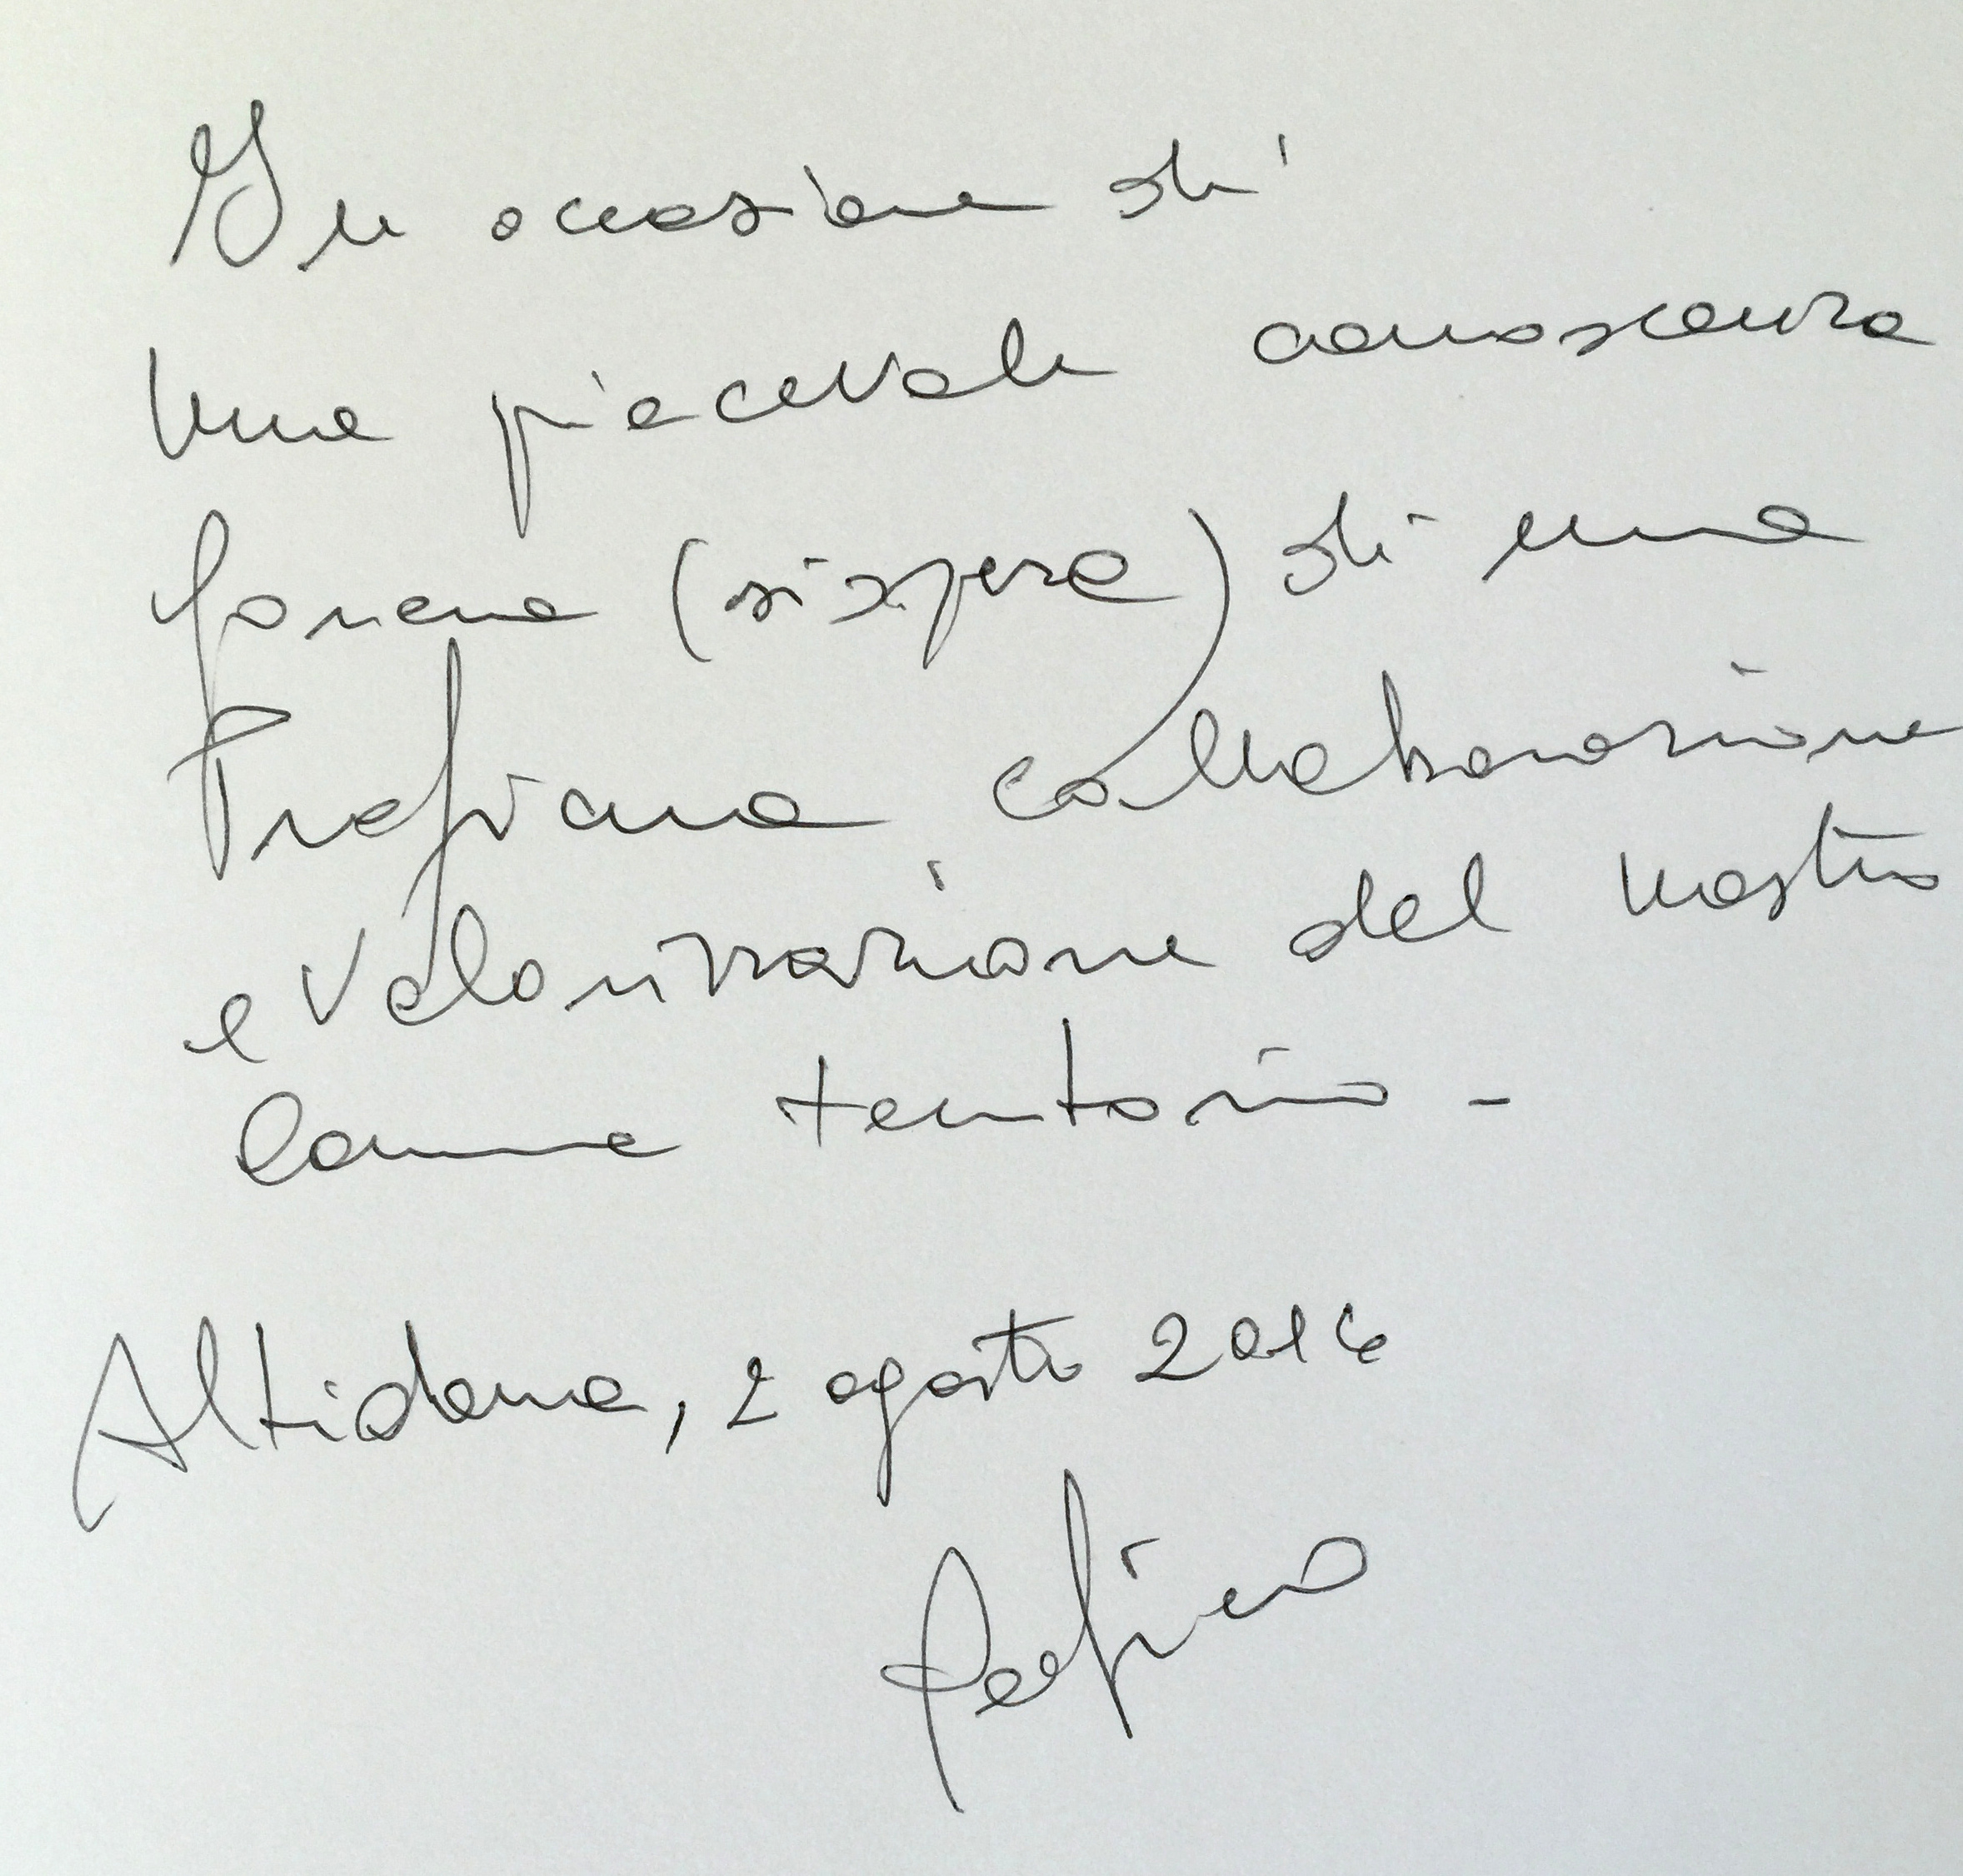 In occasione di
una piacevole conoscenza
foriera (si spera) di una
proficua collaborazione
e valorizzazione del nostro
comune territorio -
Altidona, 2 agosto 2016